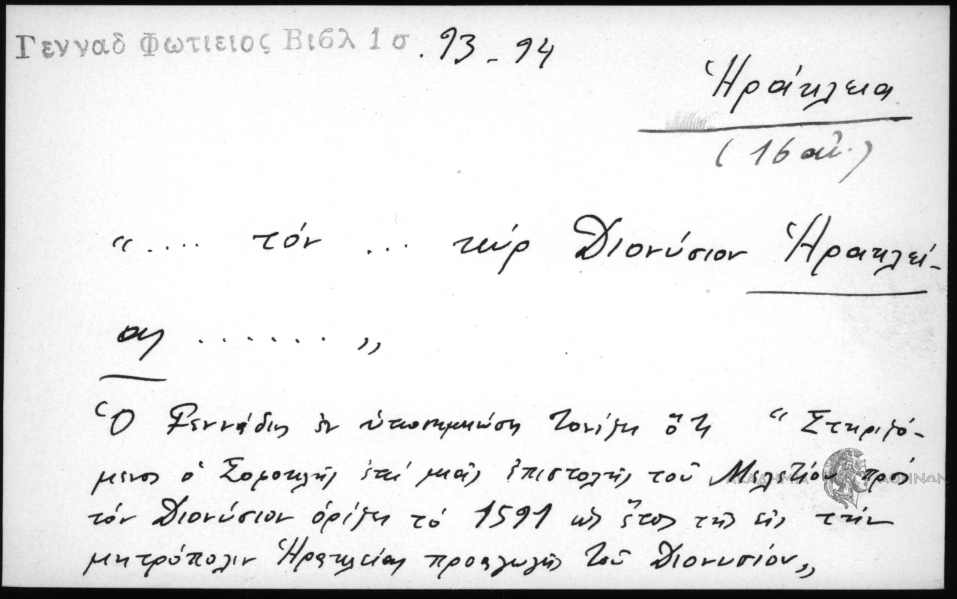 Γενναδ Φωτιειος Βιβλ 1 σ. 93 - 94
Ἡράκλεια
(16 αἰ.)
“ .... τόν ... κύρ Διονύσιον Ἡρακλεί-
ας ...... „
Ὁ Γεννάδιος ἐν ὑποσημειώσει τονίζει ὅτι “ Στηριζό-
μενος ὁ Σοφοκλῆς ἐπί μιᾶς ἐπιστολῆς τοῦ Μελετίου πρός
τόν Διονύσιον ὁρίζει τό 1591 ὡς ἔτος τῆς εἰς τήν
μητρόπολιν Ἡρακλείας προαγωγῆς τοῦ Διονυσίου„
ΑΚΑΔΗΜΙΑ ΑΘΗΝΩΝ